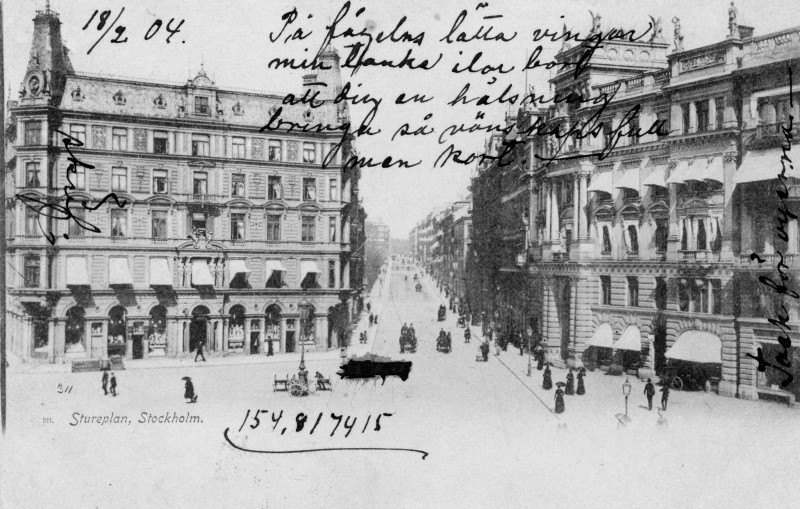 18/2 04.
På fågelns lätta vingar
min tanka ilar bort
att dig en hälsning
bringa så vänskapsfull
men kort.
Tack för vyerna.
311
311. Stureplan, Stockholm.
154,817415